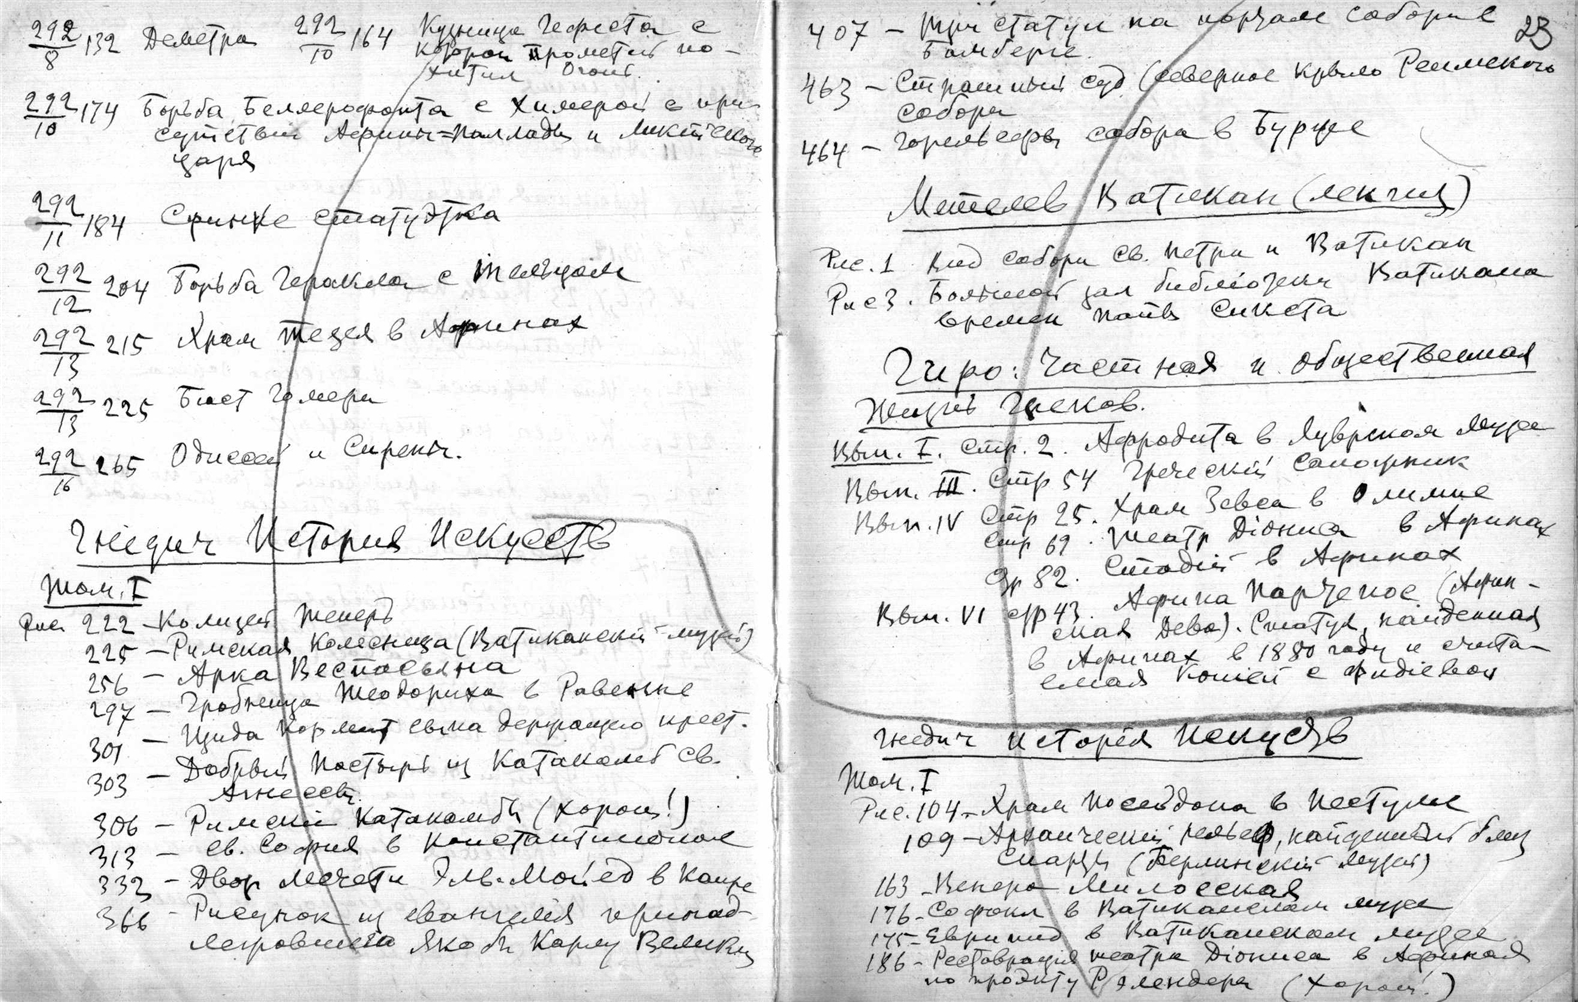 292/8 132 Деметра
292/10 164 Кузница Гефеста с
которой Прометей по-
хитил Огонь.
292/10 174 Борьба Беллерофонта с Химерой в при-
сутствии Афины=Паллады и Ликийского
царя
292/11 184 Сфинкс статуэтка
292/12 204 Борьба Геракла с тельцом
292/13 215 Храм Тезея в Афинах
292/13 225 Бюст Гомера
292/16 265 Одиссей и Сирены.
Гнедич История Искусств
Том. I
Рис. 222 - Колизей теперь
225 - Римская колесница (Ватиканский музей)
256 - Арка Веспасьяна
297 - Гробница Теодориха в Равенне
301 - Изида кормит сына держащего крест.
303 - Добрый Пастырь из Катакомб св.
Агнессы
306 - Римские Катакомбы (хорош!)
313 - св. София в Константинополе
332 - Двор мечети Эль-Мойед в Каире
366 - Рисунок из евангелия принад-
лежавшего якобы Карлу Великому
23
407 - Три статуи на портале собора в
Бамберге.
463 - Страшный суд (северное крыло Реймского
собора
464 - Горельефы собора в Бурже
Метелев Ватикан (лекция)
Рис. 1 Вид собора св. Петра и Ватикан
Рис 3. Большой зал библиотеки Ватикана
времен папы Сикста
Гиро: Частная и общественная
Жизнь Греков.
Вып. I. Стр. 2. Афродита в Луврском музее
Вып. III. Стр 54 Греческий сапожник
Вып. IV Стр 25. Храм Зевса в Олимпе
Стр 69. Театр Діониса в Афинах
Стр 82. Стадій в Афинах
Вып. VI стр 43. Афина Парфенос (Афин-
ская Дева). Статуя, найденная
в Афинах в 1880 году и счита-
емая копией с Фидіевой
Гнедич исторія Искусств
Том. I
Рис. 104 - Храм Посейдона в Пестуме
109 - Архаический рельеф, найденный близ
Спарты (Берлинский музей)
163 - Венера Милосская
176 - Софокл в Ватиканском музее
175 - Еврипид в Ватиканском музее
186 - Реставрация театра Діониса в Афинах
по проэкту (хорош!)